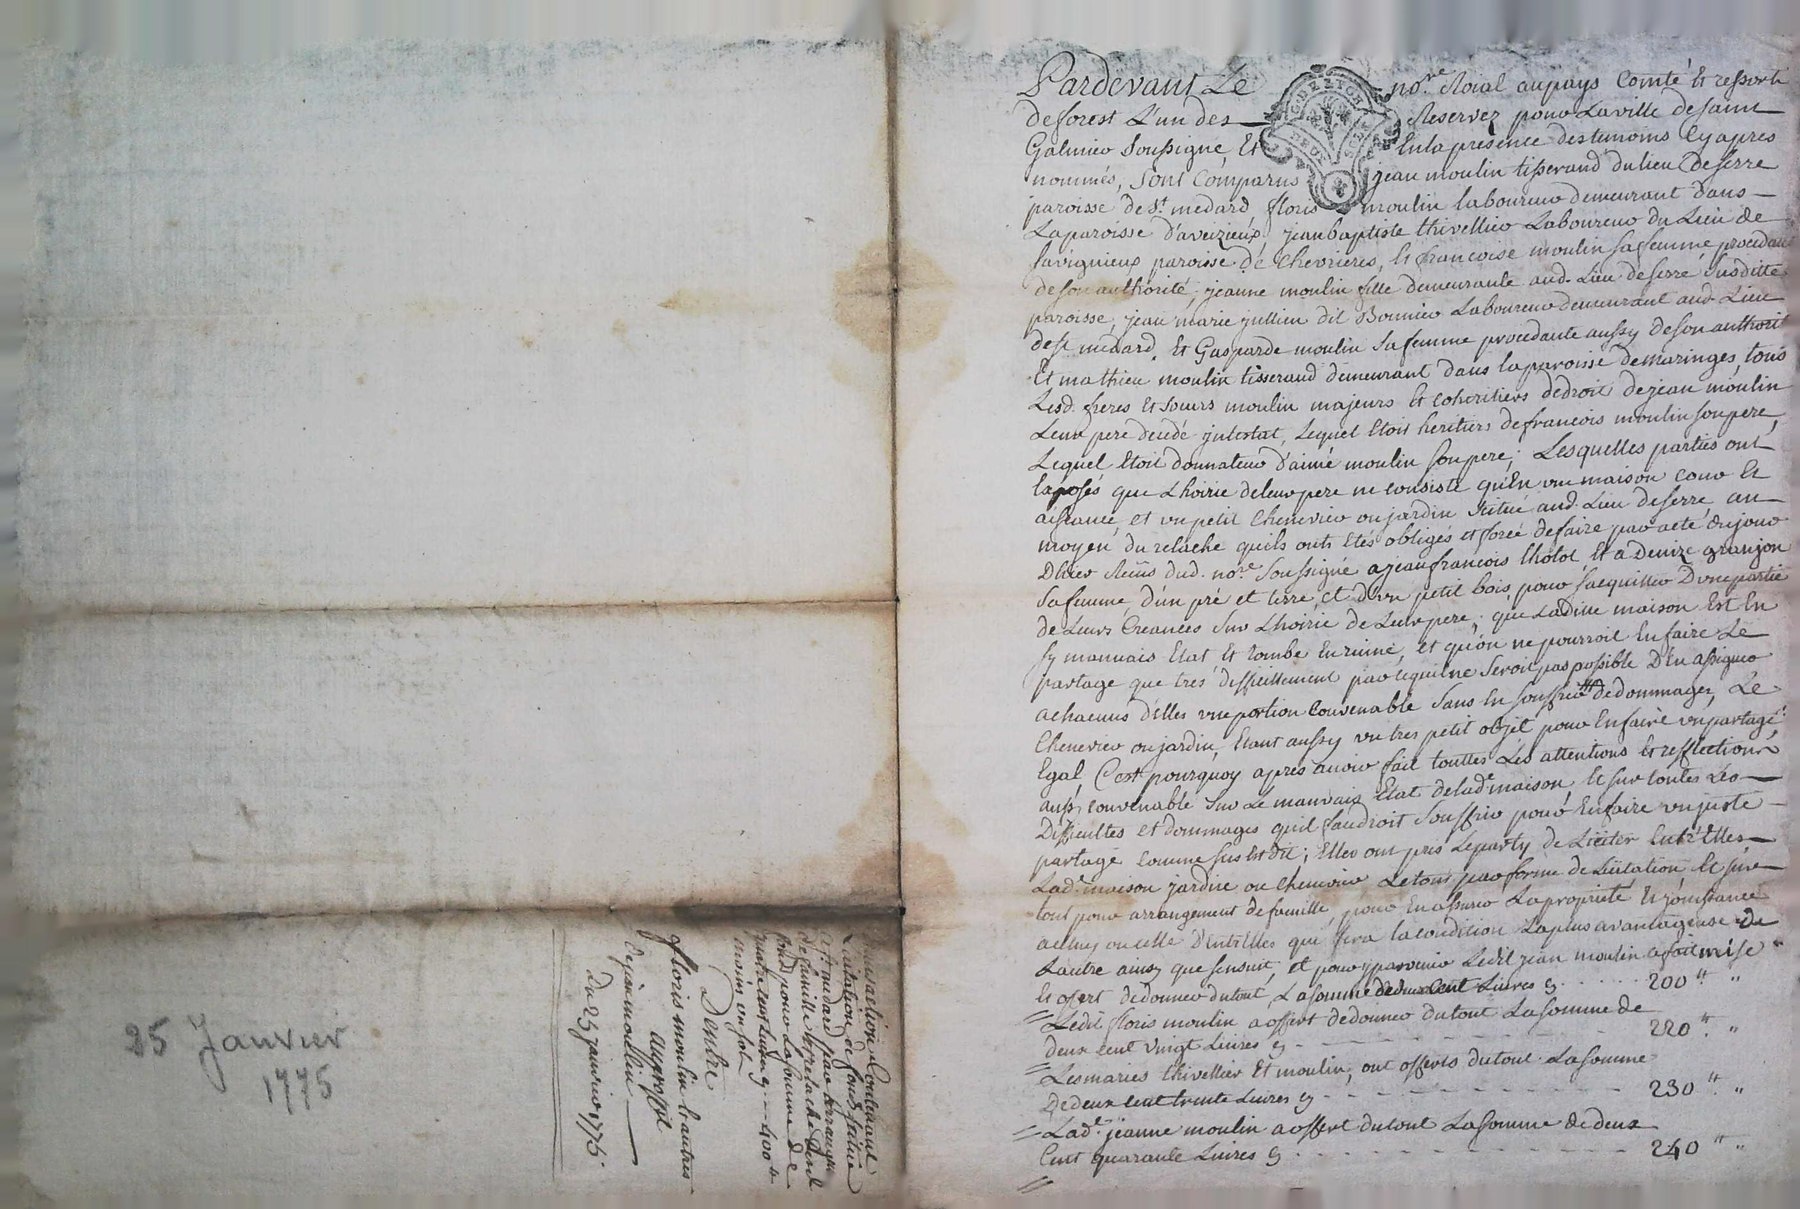 Pardevant Le no.re Roial au pays Comté Et ressort
de forest L'un des Reservez pour La ville de saint
Galmier Soussigné, Et En la présence des temoins Cy apres
nommés, Sont Comparus jean moulin tisserand du lieu de serre
paroisse de St. medard, floris moulin laboureur demeurant dans
La paroisse d'aveizieux, jean baptiste thivellier Laboureur du Lieu de
savignieux paroisse de Chevrieres, Et francoise moulin sa femme, procedante
de son authorité, jeanne moulin fille demeurante aud. Lieu de serre susditte
paroisse, jean marie jullien dit Bonnier Laboureur demeurant aud. Lieu
de st. medard, Et Gasparde moulin sa femme procedante aussy de son authorité
Et mathieu moulin tisserand demeurant dans la paroisse de maringes, tous
Lesd. freres Et soeurs moulin majeurs Et cohéritiers de droit de jean moulin
Leur pere decedé intestat, Lequel Etoit heritiers de francois moulin son pere,
Lequel Etoit donnateur d'aimé moulin son pere; Lesquelles parties ont
Exposés que L'hoirie de leur pere ne consiste qu'En une maison cour Et
aisance, et un petit chenevier ou jardin scitué aud. Lieu de serre, au
moyen du relache quils onts Etés obligés et forcé de faire par acte du jour
D'hier Reçüs dud. no.re Soussigné a jean francois tholot Et a Denize granjon
sa femme, d'un pré et terre, et d'un petit bois, pour s'acquitter D'une partie
de Leurs Creances sur L'hoirie de Leur pere; que Laditte maison Est En
sy mauvais Etat Et tombe En ruine, et qu'on ne pourroit En faire Le
partage que tres difficillement par ce quil ne seroit pas possible D'En assigner
a chacuns d'Elles une portion Convenable sans En souffrir de dommages, Le
Chenevier ou jardin, Etant aussy un tres petit objet pour En faire un partage
Egal, C'est pourquoy apres avoir fait touttes Les attentions Et reflections
aussy convenable sur Le mauvais Etat de lad.e maison, Et sur toutes Les
Difficultes et dommages quil faudroit souffrir pour En faire un juste
partage comme sus Est dit; Elles ont pris Le party de Liciter Entr'Elles
Lad.e maison jardin ou chenevier Le tout par forme de Licitation, Et sur
tout pour arrangement de famille, pour En assurer La propriété Et jouissance
a celuy ou celle D'Entr'Elles qui fera la condition La plus avantageuse de
Lautre ainsy que sensuit, et pour y parvenir Ledit jean moulin a fait mise
Et offert de donner du tout, La somme de deux Cent Livres cy 200 ₶ "
Ledit floris moulin a offert de donner du tout La somme de
deux cent vingt Livres cy 220 ₶ "
Les maries thivellier Et moulin, ont offerts du tout La somme
De deux cent trente Livres cy 230 ₶ "
Lad.e jeanne moulin a offert du tout La somme de deux
Cent quarante Livres cy 240 ₶ "
Transaction Contenant
Licitation de fonds scitué
a St. medard par arrangement
de famille Et relache
fonds pour La somme de
quatre cent Livres cy 400 ₶
Entre
floris moulin Et autres
au profit
de jean moulin
Du 25 janvier 1775.
25 Janvier
1775